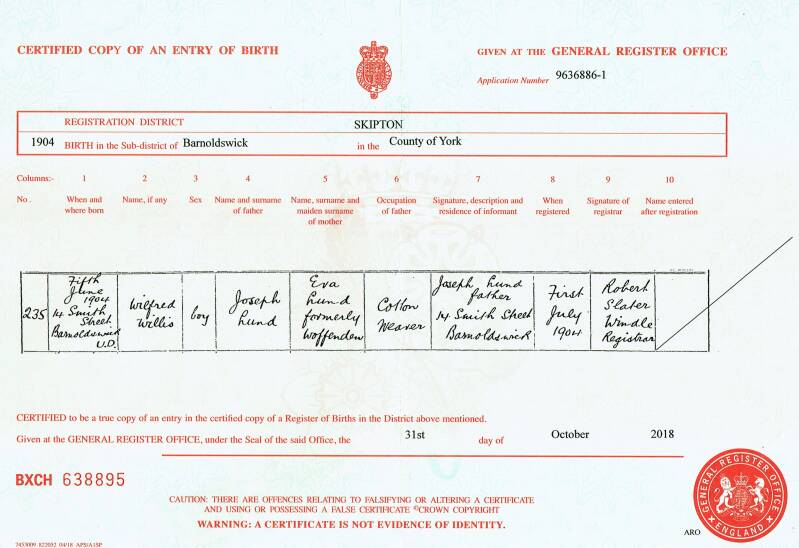 CERTIFIED COPY OF AN ENTRY OF BIRTH
GIVEN AT THE GENERAL REGISTER OFFICE
Application Number 9636886-1
REGISTRATION DISTRICT SKIPTON
1904 BIRTH in the Sub-district of Barnoldswick in the County of York
Columns:- 1 2 3 4 5 6 7 8 9 10
No. When and where born Name, if any Sex Name and surname of father Name, surname and maiden surname of mother Occupation of father Signature, description and residence of informant When registered Signature of registrar Name entered after registration
235
Fifth
June
1904
14 Smith
Street
Barnoldswick
U.D.
Wilfred
Willis
boy
Joseph
Lund
Eva
Lund
formerly
Woffenden
Cotton
Weaver
Joseph Lund
father
14 Smith Street
Barnoldswick
First
July
1904
Robert
Slater
Windle
Registrar
CERTIFIED to be a true copy of an entry in the certified copy of a Register of Births in the District above mentioned.
Given at the GENERAL REGISTER OFFICE, under the Seal of the said Office, the 31st day of October 2018
BXCH 638895
CAUTION: THERE ARE OFFENCES RELATING TO FALSIFYING OR ALTERING A CERTIFICATE
AND USING OR POSSESSING A FALSE CERTIFICATE ©CROWN COPYRIGHT
WARNING: A CERTIFICATE IS NOT EVIDENCE OF IDENTITY.
GENERAL REGISTER OFFICE
ENGLAND
ARO
7453009 822032 04/18 APS/A1SP